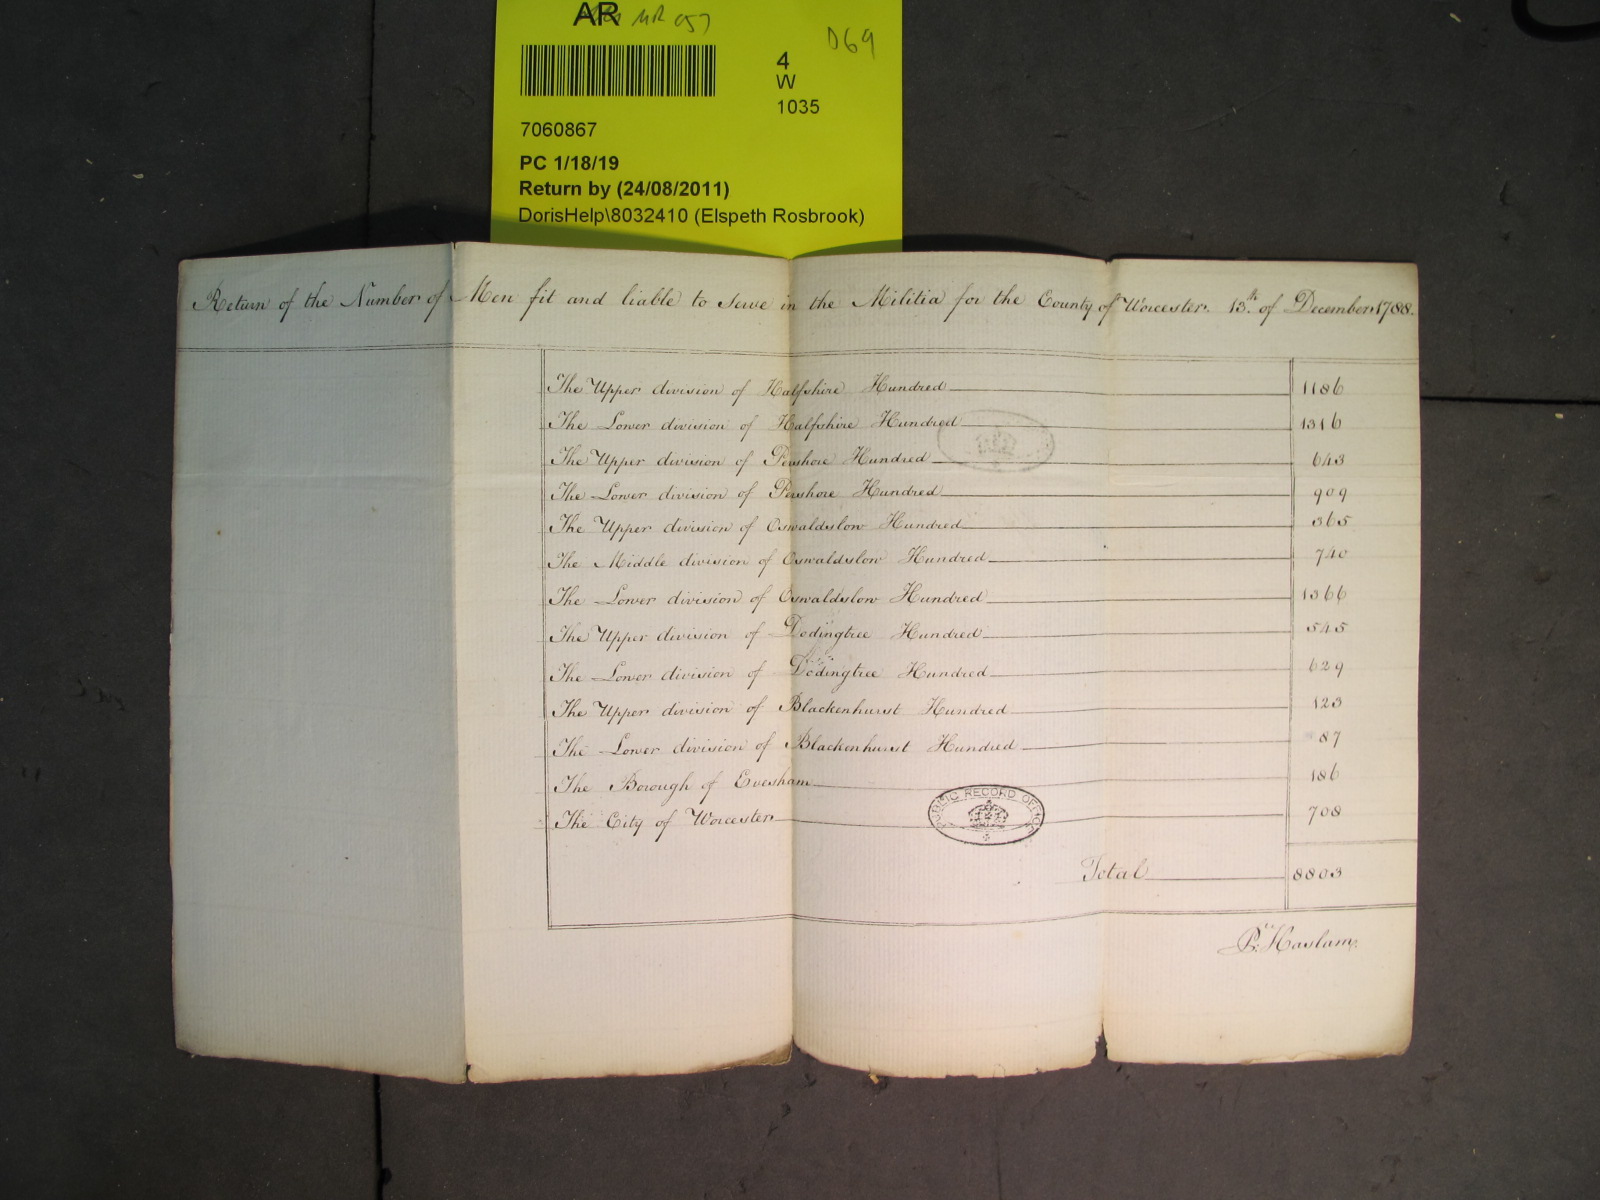 AR
D69
4
W
1035
7060867
PC 1/18/19
Return by (24/08/2011)
DorisHelp\8032410 (Elspeth Rosbrook)
Return of the Number of Men fit and liable to Serve in the Militia for the County of Worcester. 13th of December 1788.
The Upper division of Halfshire Hundred 1186
The Lower division of Halfshire Hundred 1316
The Upper division of Pershore Hundred 643
The Lower division of Pershore Hundred 909
The Upper division of Oswaldslow Hundred 365
The Middle division of Oswaldslow Hundred 740
The Lower division of Oswaldslow Hundred 1366
The Upper division of Dodingtree Hundred 545
The Lower division of Dodingtree Hundred 629
The Upper division of Blackenhurst Hundred 123
The Lower division of Blackenhurst Hundred 87
The Borough of Evesham 186
The City of Worcester 708
PUBLIC RECORD OFFICE
Total 8803
Haslam